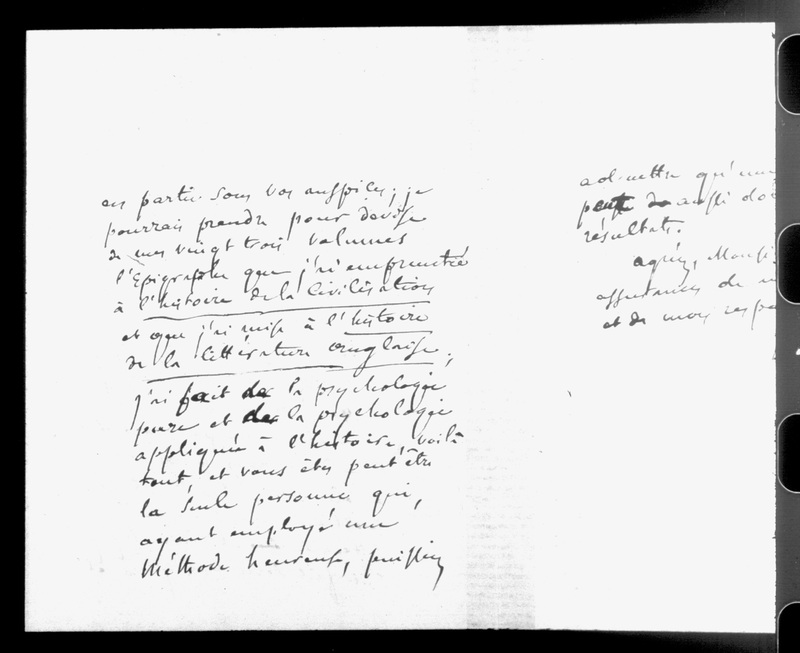 en partie sous vos auspices; je
pourrais prendre pour devise
de mes vingt trois volumes
l'Epigraphe que j'ai empruntée
à l'histoire de la Civilisation
et que j'ai mise à l'histoire
de la littérature anglaise;
j'ai fait de la psychologie
pure et de la psychologie
appliquée à l'histoire, voilà
tout, et vous êtes peut être
la seule personne qui,
ayant employé une
Méthode heureuse, puissiez
admettre qu'une
peut de aussi do
résultats.
agréez, Monsi
assurances de
et de mon respe